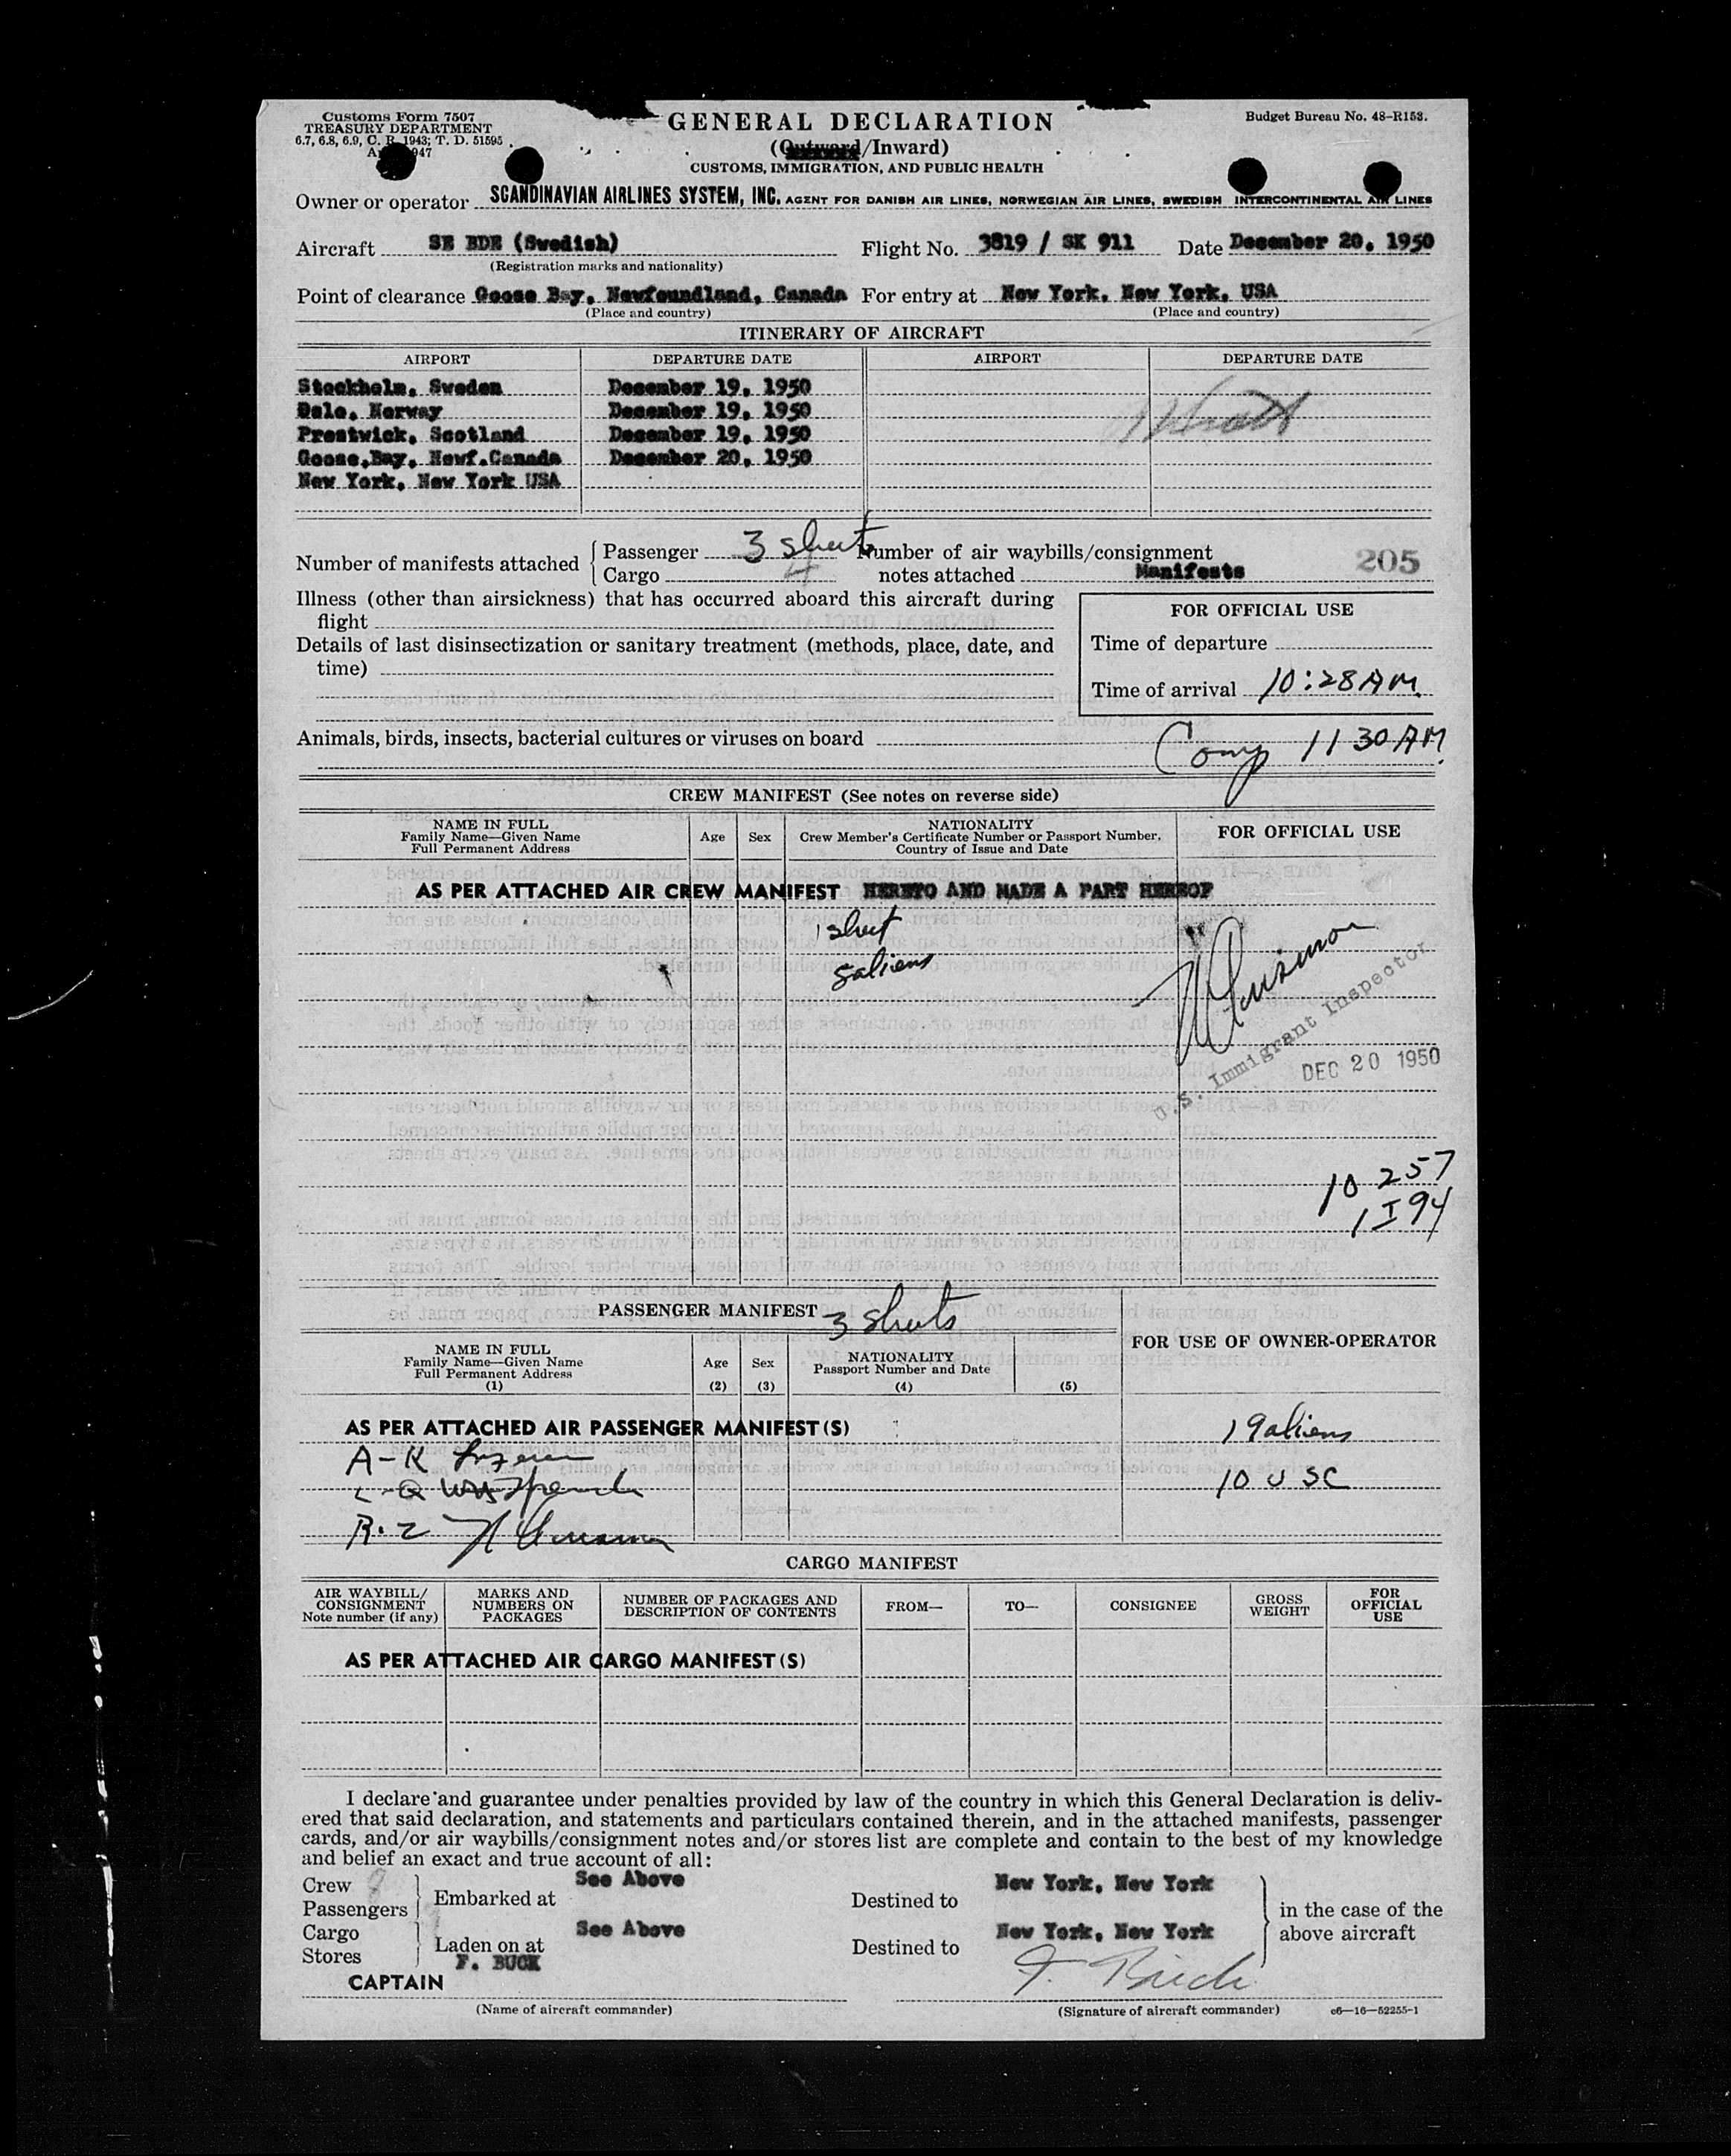 Customs Form 7507
TREASURY DEPARTMENT
6.7, 6.8, 6.9, C. R. 1943; T. D. 51595
GENERAL DECLARATION
(Outward/Inward)
CUSTOMS, IMMIGRATION, AND PUBLIC HEALTH
Budget Bureau No. 48-R153.
Owner or operator SCANDINAVIAN AIRLINES SYSTEM, INC. AGENT FOR DANISH AIR LINES, NORWEGIAN AIR LINES, SWEDISH INTERCONTINENTAL AIR LINES
Aircraft SE BDE (Swedish) Flight No. 3819 / SK 911 Date December 20, 1950
(Registration marks and nationality)
Point of clearance Goose Bay, Newfoundland, Canada For entry at New York, New York, USA
(Place and country) (Place and country)
ITINERARY OF AIRCRAFT
AIRPORT DEPARTURE DATE AIRPORT DEPARTURE DATE
Stockholm, Sweden December 19, 1950
Oslo, Norway December 19, 1950
Prestwick, Scotland December 19, 1950
Goose,Bay, Newf.Canada December 20, 1950
New York, New York USA
Number of manifests attached Passenger 3 sheets Number of air waybills/consignment
Cargo 4 notes attached Manifests 205
Illness (other than airsickness) that has occurred aboard this aircraft during
flight
Details of last disinsectization or sanitary treatment (methods, place, date, and
time)
FOR OFFICIAL USE
Time of departure
Time of arrival 10:28 AM.
Animals, birds, insects, bacterial cultures or viruses on board
Comp 11 30 AM
CREW MANIFEST (See notes on reverse side)
NAME IN FULL
Family Name—Given Name
Full Permanent Address
Age Sex
NATIONALITY
Crew Member's Certificate Number or Passport Number,
Country of Issue and Date
FOR OFFICIAL USE
AS PER ATTACHED AIR CREW MANIFEST HERETO AND MADE A PART HEREOF
1 sheet
9 aliens
U.S. Immigrant Inspector
DEC 20 1950
10 257
1 I 94
PASSENGER MANIFEST 3 sheets
FOR USE OF OWNER-OPERATOR
NAME IN FULL
Family Name—Given Name
Full Permanent Address
(1)
Age
(2)
Sex
(3)
NATIONALITY
Passport Number and Date
(4) (5)
AS PER ATTACHED AIR PASSENGER MANIFEST(S)
19 aliens
A-K
10 USC
L-Q
R-Z
CARGO MANIFEST
AIR WAYBILL/
CONSIGNMENT
Note number (if any)
MARKS AND
NUMBERS ON
PACKAGES
NUMBER OF PACKAGES AND
DESCRIPTION OF CONTENTS
FROM— TO— CONSIGNEE
GROSS
WEIGHT
FOR
OFFICIAL
USE
AS PER ATTACHED AIR CARGO MANIFEST(S)
I declare and guarantee under penalties provided by law of the country in which this General Declaration is deliv-
ered that said declaration, and statements and particulars contained therein, and in the attached manifests, passenger
cards, and/or air waybills/consignment notes and/or stores list are complete and contain to the best of my knowledge
and belief an exact and true account of all:
Crew
Passengers
Embarked at See Above Destined to New York, New York
Cargo
Stores
Laden on at See Above Destined to New York, New York
in the case of the
above aircraft
F. BUCK
CAPTAIN
F. Buck
(Name of aircraft commander) (Signature of aircraft commander) c6—16—52255-1